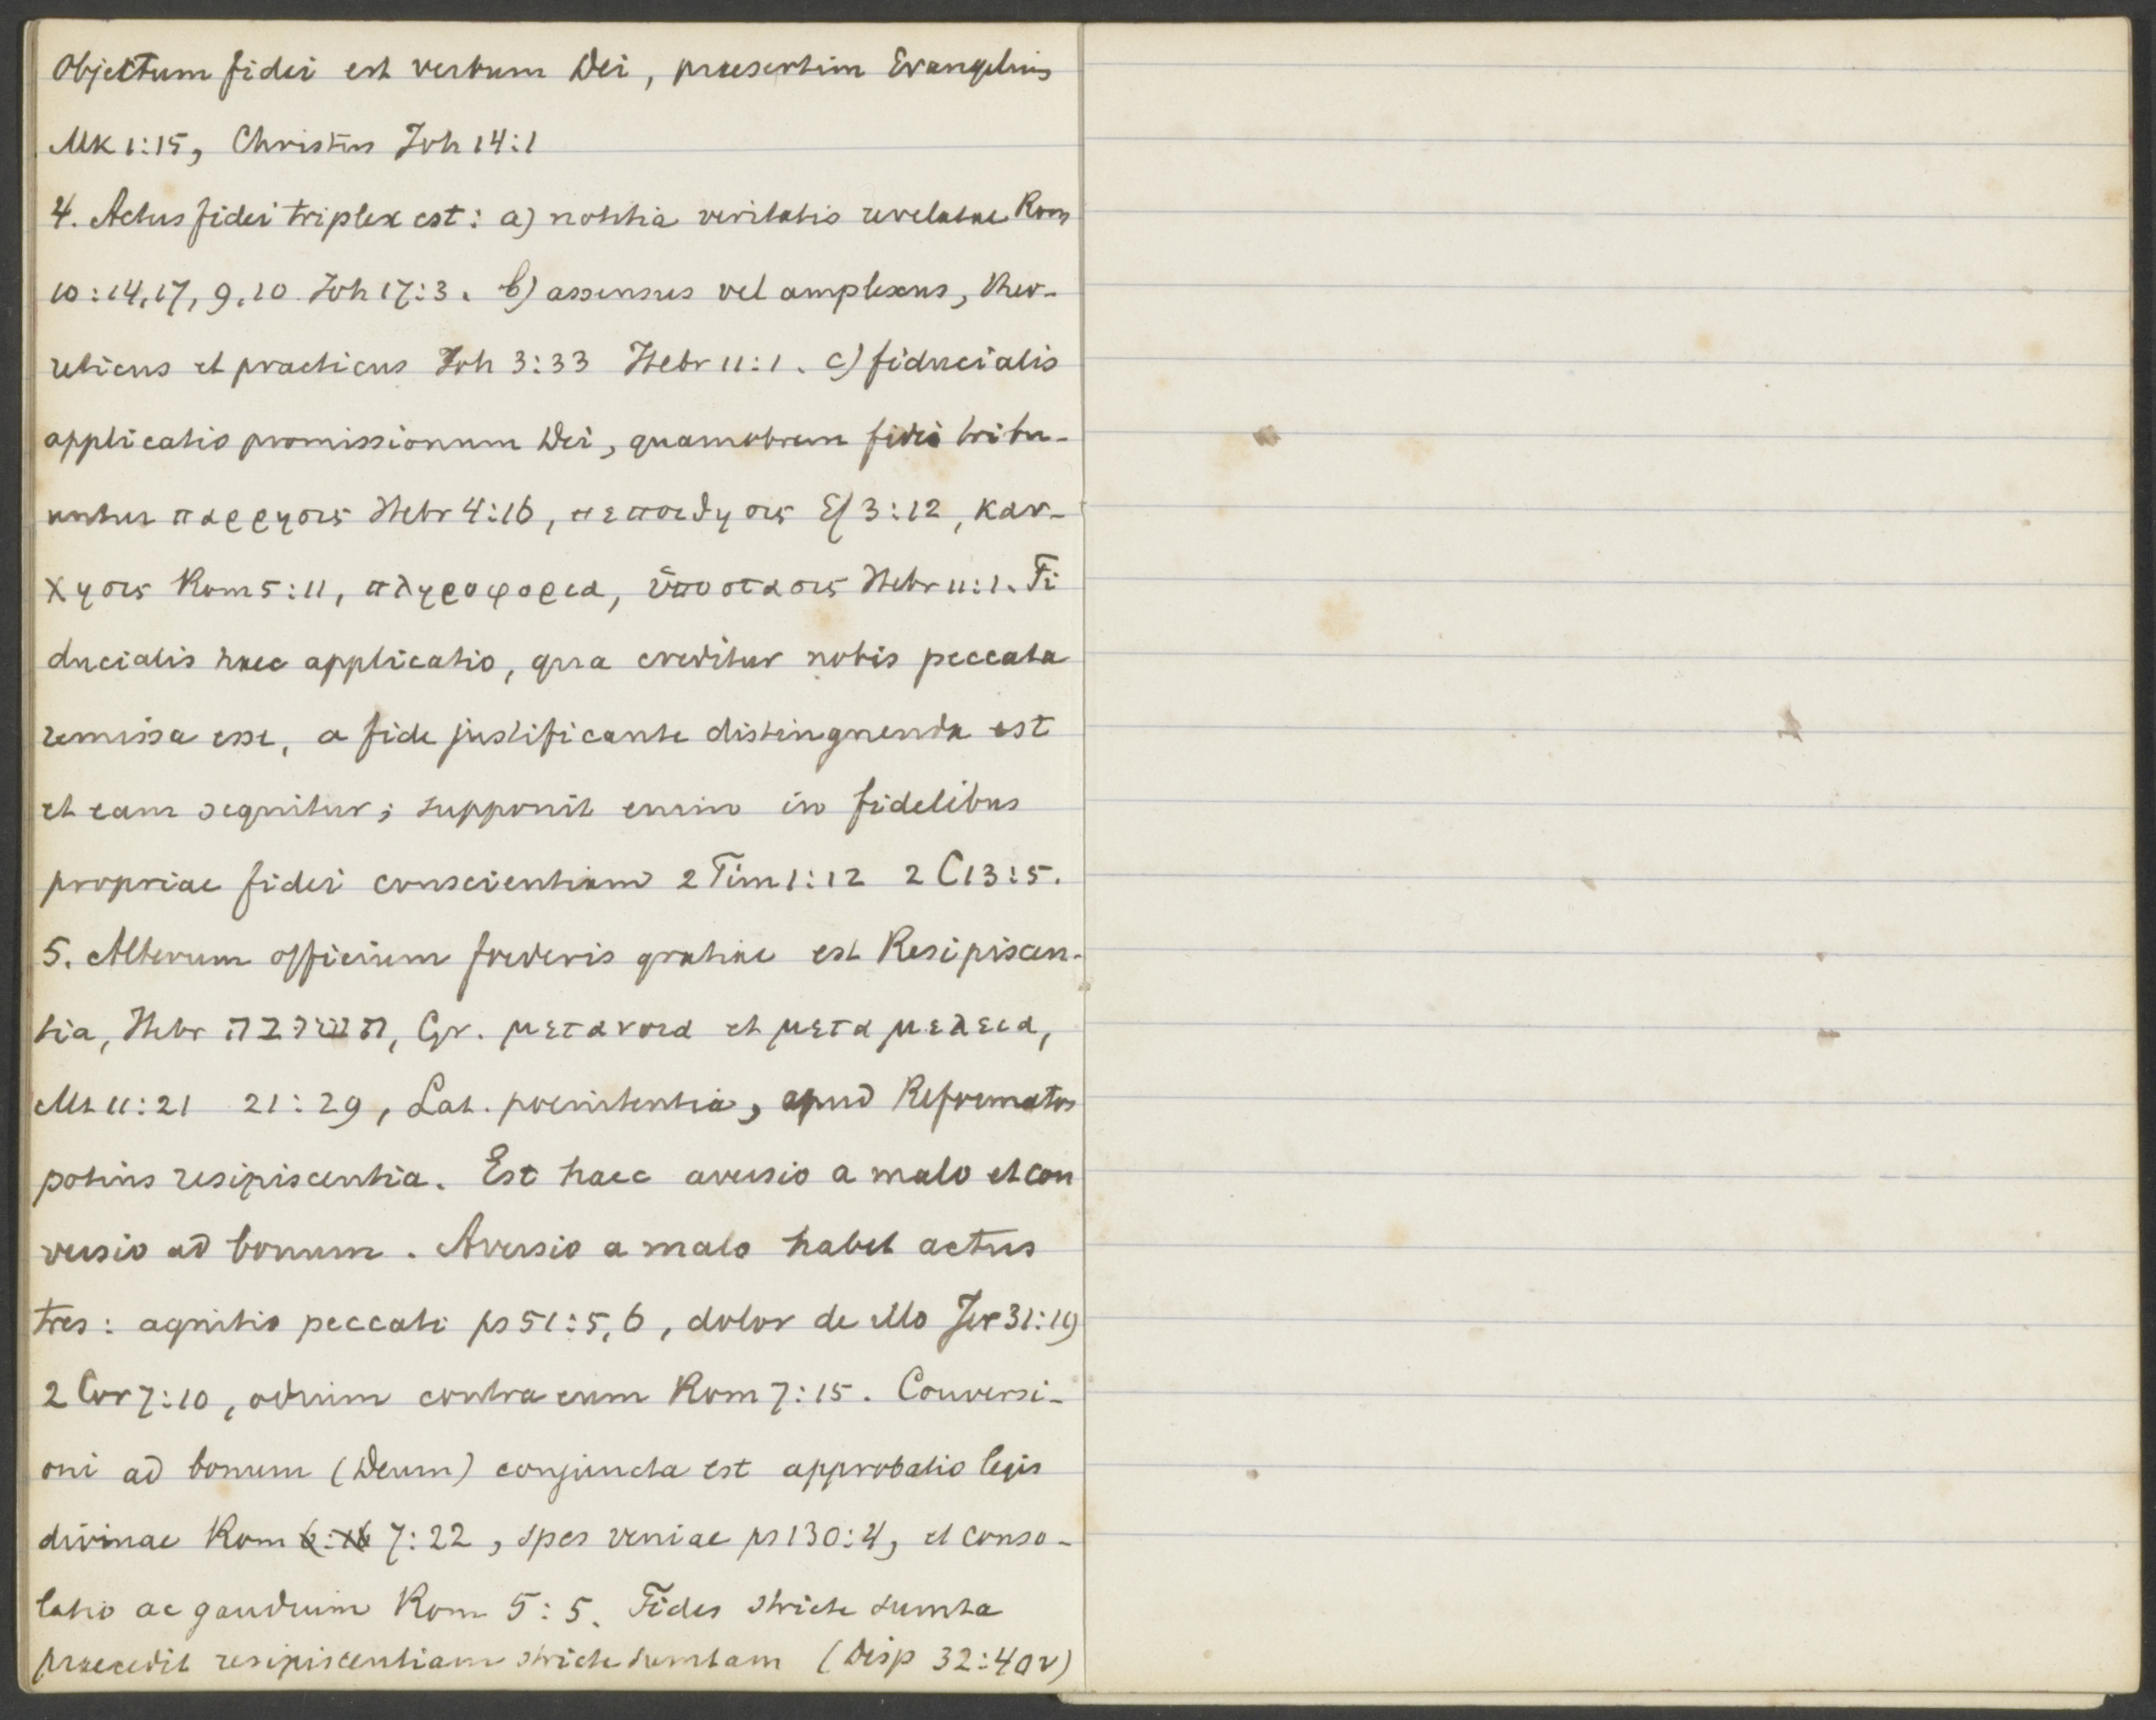 Objectum fidei est verbum Dei, praesertim Evangelium
Mk 1:15, Christus Joh 14:1
4. Actus fidei triplex est: a) notitia veritatis revelatae Rom
10:14,17, 9,10 Joh 17:3. b) assensus vel amplexus, theo-
reticus et practicus Joh 3:33 Hebr 11:1. c) fiducialis
applicatio promissionum Dei, quamobrem fidei tribu-
untur παρρησις Hebr 4:16, πεποιθησις Ef 3:12, καυ-
χησις Rom 5:11, πληροφορια, ὑποστασις Hebr 11:1. Fi
ducialis haec applicatio, qua creditur nobis peccata
remissa esse, a fide justificante distinguenda est
et eam sequitur; supponit enim in fidelibus
propriae fidei conscientiam 2 Tim 1:12 2 C 13:5.
5. Alterum officium foederis gratiae est Resipiscen-
tia, Hebr תשובה, Gr. μετανοια et μεταμελεια,
Mt 11:21 21:29, Lat. poenitentia, apud Reformatos
potius resipiscentia. Est haec aversio a malo et con
versio ad bonum. Aversio a malo habet actus
tres: agnitio peccati ps 51:5,6, dolor de illo Jer 31:19
2 Cor 7:10, odium contra eum Rom 7:15. Conversi-
oni ad bonum (Deum) conjuncta est approbatio legis
divinae Rom 7:22, spes veniae ps 130:4, et conso-
latio ac gaudium Rom 5:5. Fides stricte sumta
praecedit resipiscentiam stricte sumtam (Disp 32:40v)